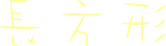 長方形